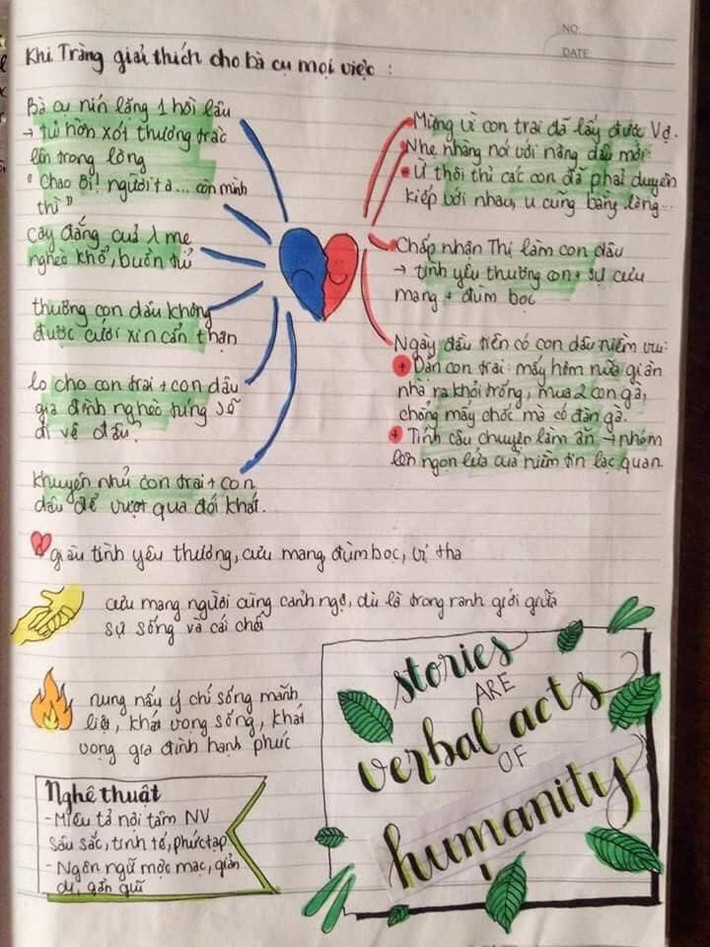 NO
DATE
Khi Tràng giải thích cho bà cụ mọi việc :
Bà cụ nín lặng 1 hồi lâu
→ tủi hờn xót thương trào
lên trong lòng
"Chao ôi! người ta... còn mình
thì"
cay đắng của 1 mẹ
nghèo khổ, buồn tủi
thương con dâu không
được cưới xin cẩn thận
lo cho con trai + con dâu
gia đình nghèo túng sẽ
đi về đâu?
khuyên nhủ con trai + con
dâu để vượt qua đói khát.
Mừng vì con trai đã lấy được Vợ.
Nhẹ nhàng nói với nàng dâu mới:
Ừ thôi thì các con đã phải duyên
kiếp với nhau, u cũng bằng lòng...
Chấp nhận Thị làm con dâu
→ tình yêu thương con + sự cưu
mang + đùm bọc
Ngày đầu tiên có con dâu niềm vui:
+ Dặn con trai: mấy hôm nữa gian
nhà ra khỏi trống, mua 2 con gà,
chẳng mấy chốc mà có đàn gà.
+ Tính câu chuyện làm ăn → nhóm
lên ngọn lửa của niềm tin lạc quan.
giàu tình yêu thương, cưu mang, đùm bọc, vị tha
cưu mang người cùng cảnh ngộ, dù là trong ranh giới giữa
sự sống và cái chết
nung nấu ý chí sống mãnh
liệt, khát vọng sống, khát
vọng gia đình hạnh phúc
Nghệ thuật
- Miêu tả nội tâm NV
sâu sắc, tinh tế, phức tạp
- Ngôn ngữ mộc mạc, giản
dị, gần gũi
stories
ARE
verbal acts
OF
humanity